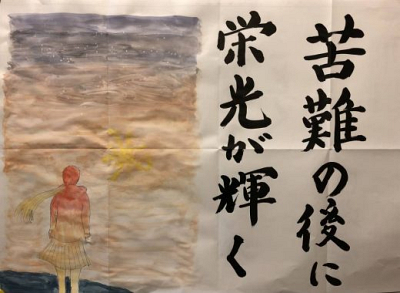 苦難の後に
栄光が輝く